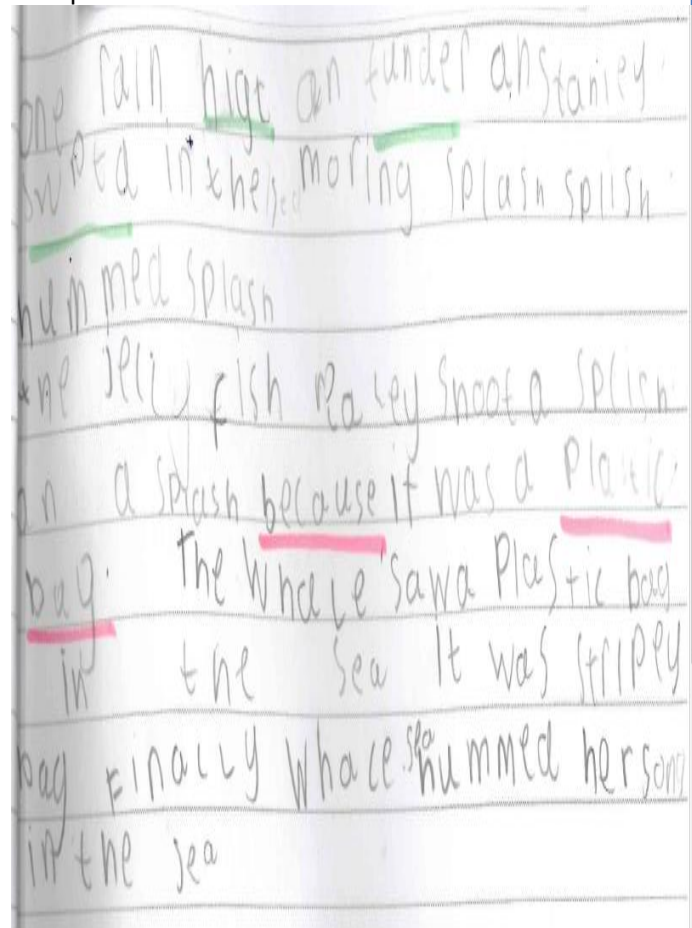 one rain higt an funder an Stanley.
in the sea moring splash splish
hummed splash
the jelly fish splish
an a splash because it was a plastic
bag. The Whale sawa Plastic bag
in the sea it was stripey
bag Finally Whale sea hummed her song
in the sea